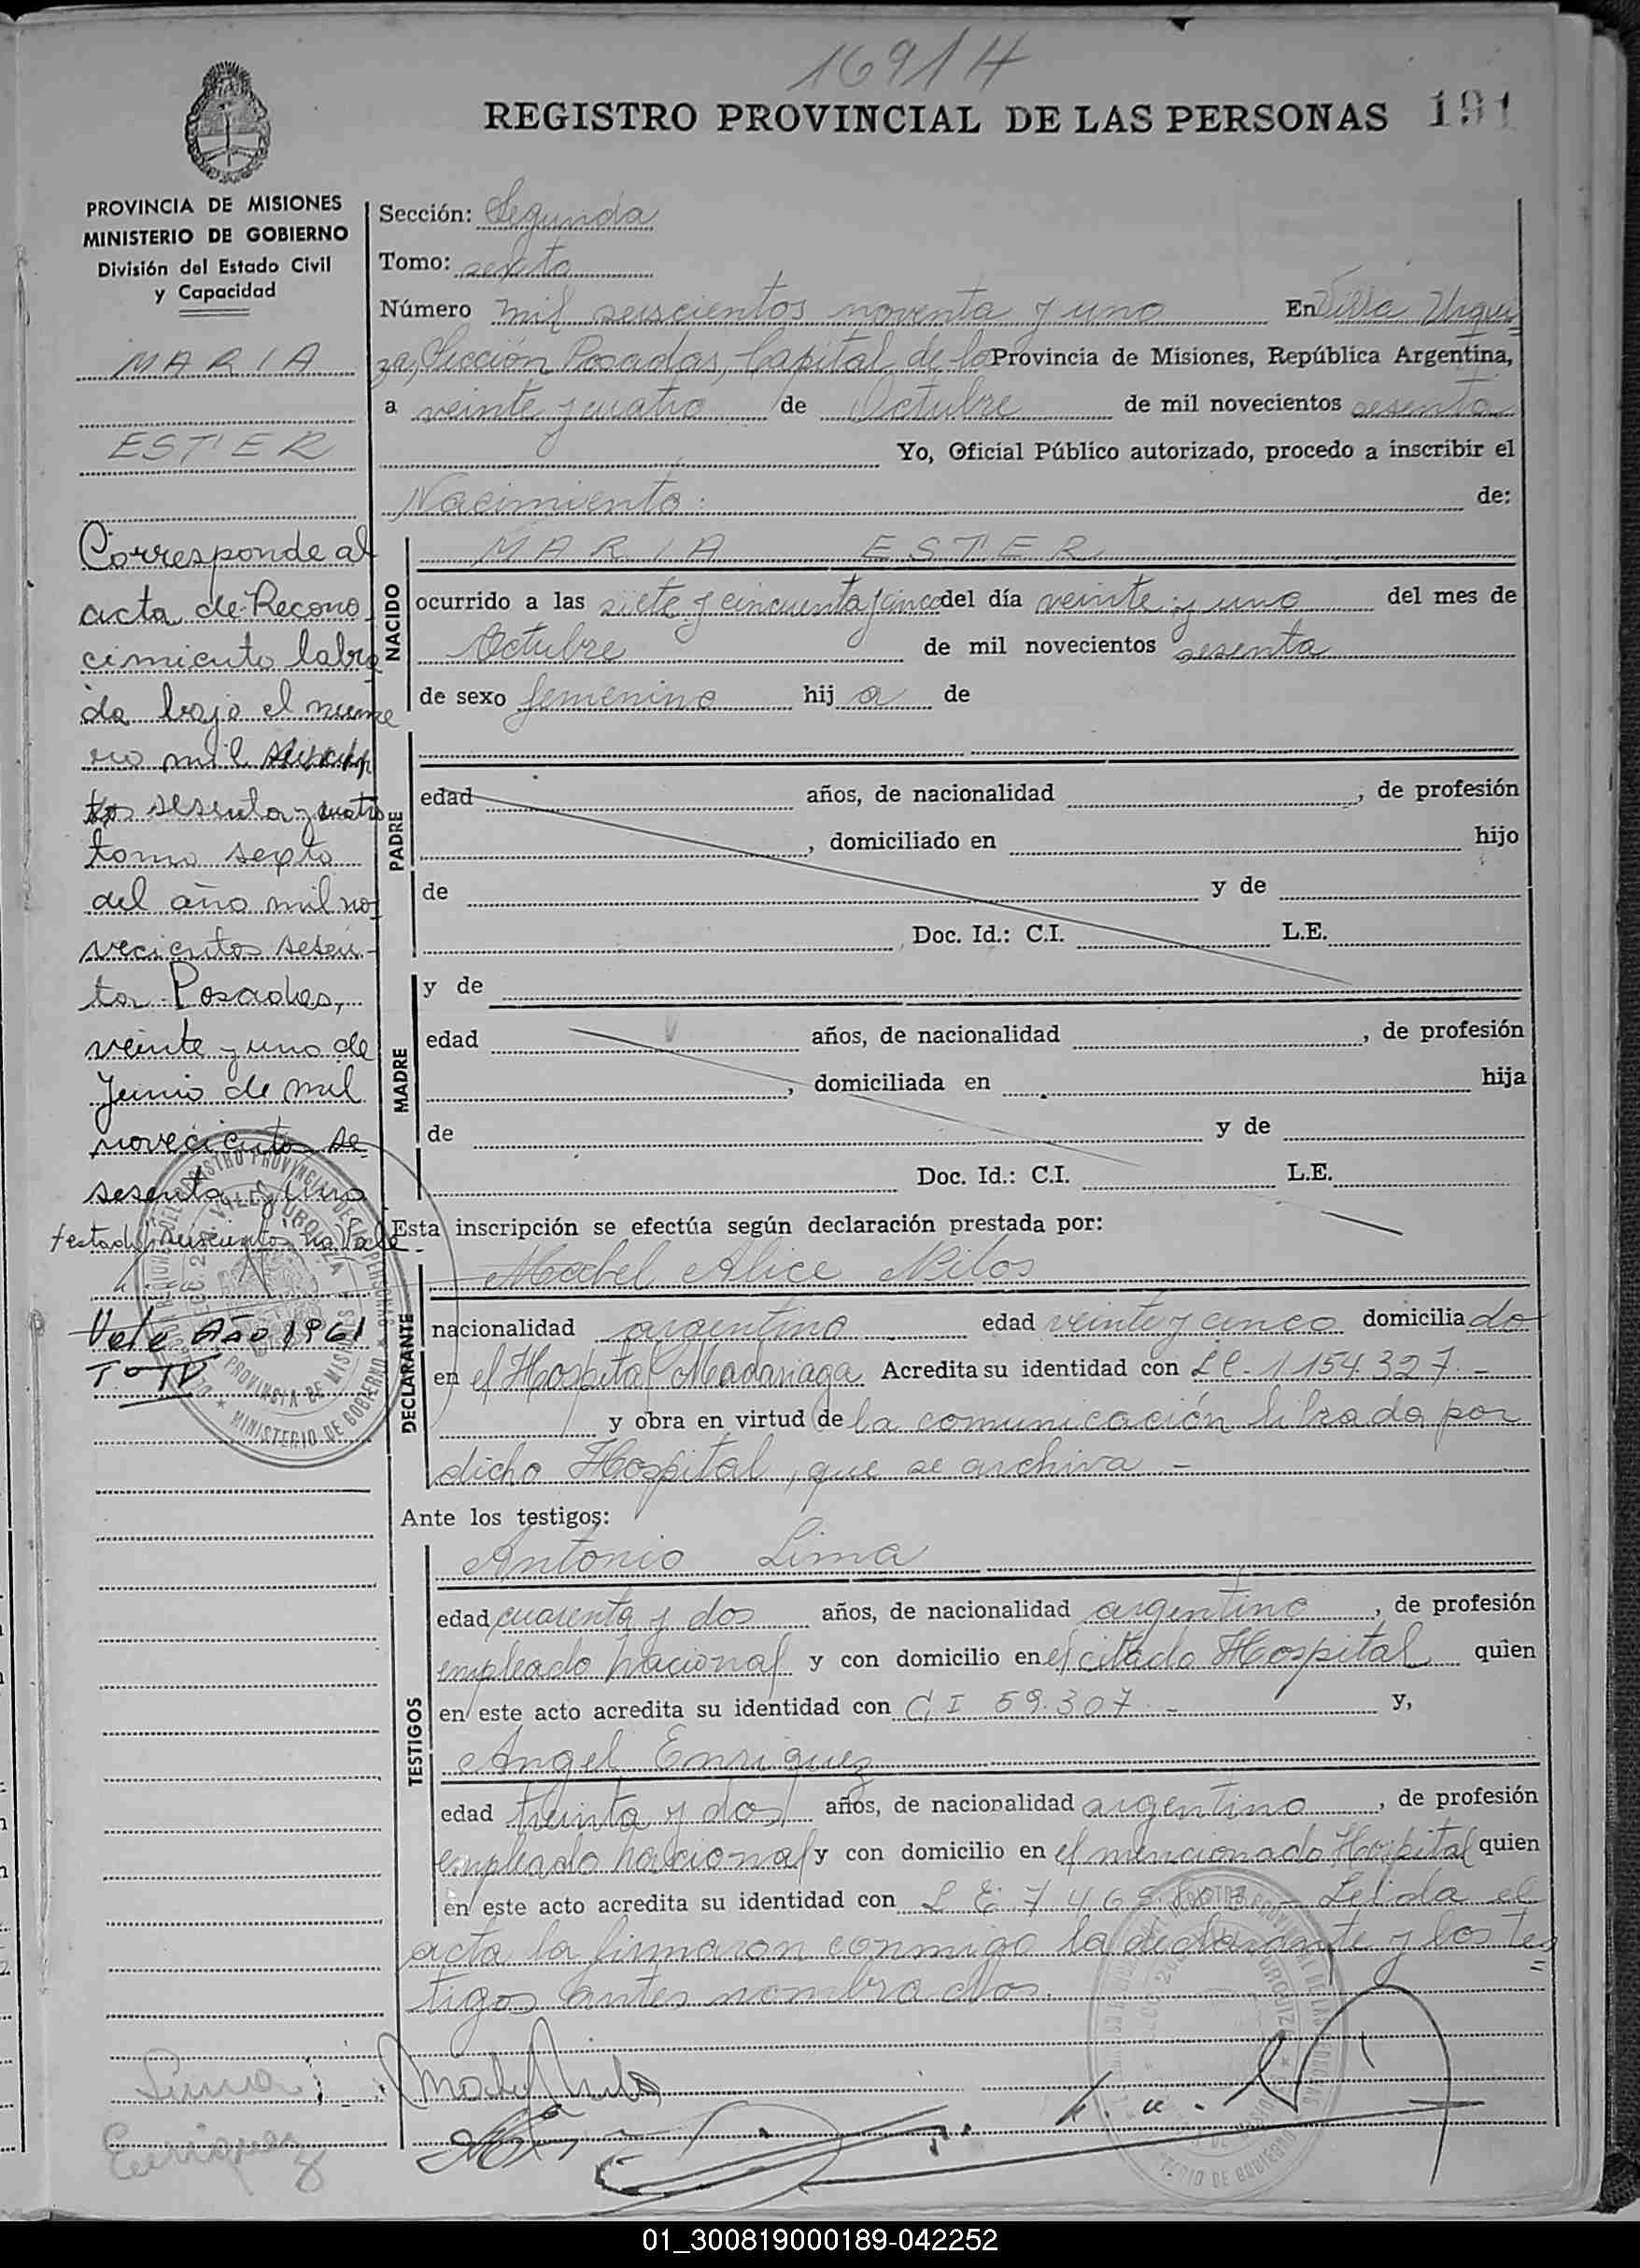 1691 H
REGISTRO PROVINCIAL DE LAS PERSONAS 191
PROVINCIA DE MISIONES
MINISTERIO DE GOBIERNO
División del Estado Civil
y Capacidad
MARIA
ESTER
Corresponde al
acta de Recono
cimiento labra
da bajo el nume
ro mil
sesenta y cuatro
tomo sexto
del año mil no
vecientos sesen-
ta Posadas,
veinte y uno de
Junio de mil
novecientos se
sesenta y uno
Vale Año 1961
Sección: Segunda
Tomo: sexto
Número mil seiscientos noventa y uno En Villa Urqui
za, Sección Posadas, Capital de la Provincia de Misiones, República Argentina,
a veinte y cuatro de Octubre de mil novecientos sesenta
Yo, Oficial Público autorizado, procedo a inscribir el
Nacimiento: de:
NACIDO
MARIA ESTER
ocurrido a las siete y cincuenta y cinco del día veinte y uno del mes de
Octubre de mil novecientos sesenta
de sexo femenino hij a de
PADRE
edad años, de nacionalidad , de profesión
, domiciliado en hijo
de y de
Doc. Id.: C.I. L.E.
MADRE
y de
edad años, de nacionalidad , de profesión
, domiciliada en hija
de y de
Doc. Id.: C.I. L.E.
Esta inscripción se efectúa según declaración prestada por:
DECLARANTE
Mabel Alice
nacionalidad argentina edad veinte y cinco domicilia do
en el Hospital Madariaga Acredita su identidad con LC- 1154.327.-
y obra en virtud de la comunicación librada por
dicho Hospital, que se archiva.-
Ante los testigos:
TESTIGOS
Antonio Lima
edad cuarenta y dos años, de nacionalidad argentino , de profesión
empleado nacional y con domicilio en el citado Hospital quien
en este acto acredita su identidad con C I 59.307.- y,
Angel Enriquez
edad treinta y dos años, de nacionalidad argentino , de profesión
empleado nacional y con domicilio en el mencionado Hospital quien
en este acto acredita su identidad con L E - Leida el
acta la firmaron conmigo la declarante y los tes
tigos antes nombrados.
Lima
Enriquez
01_300819000189-042252